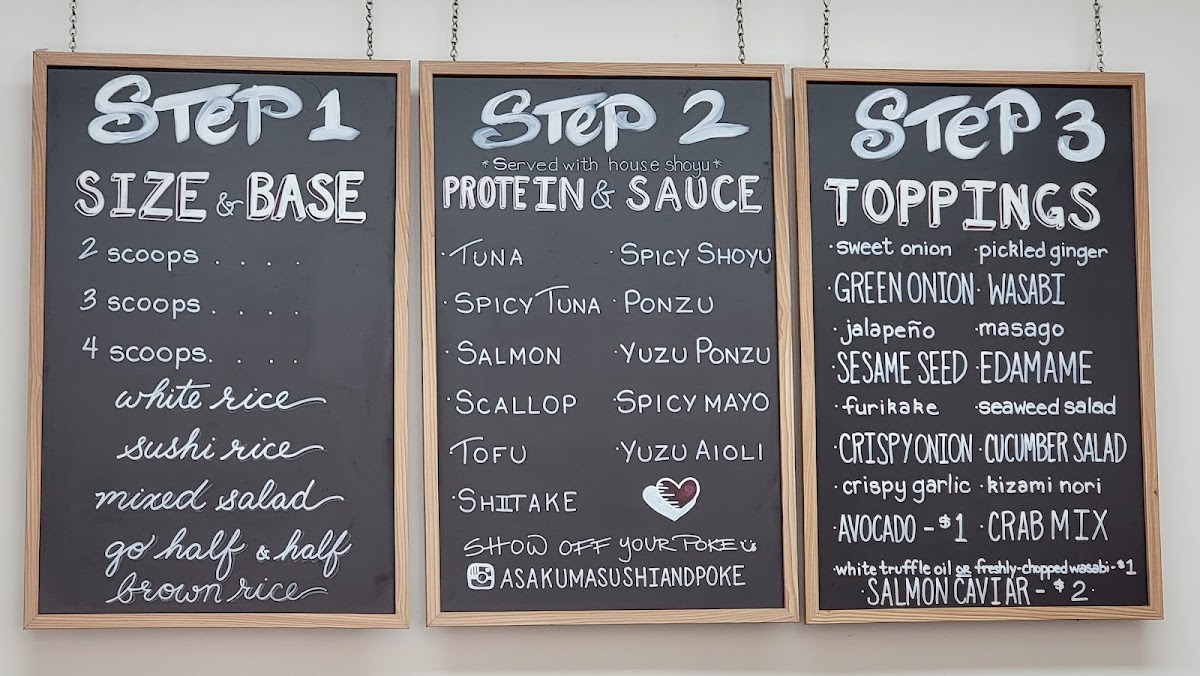 STEP 1
SIZE & BASE
2 scoops . . . .
3 scoops . . . .
4 scoops. . . .
white rice
sushi rice
mixed salad
go half & half
brown rice
STEP 2
*Served with house shoyu*
PROTEIN & SAUCE
·TUNA ·SPICY SHOYU
·SPICY TUNA ·PONZU
·SALMON ·YUZU PONZU
·SCALLOP ·SPICY MAYO
·TOFU ·YUZU AIOLI
·SHIITAKE
SHOW OFF YOUR POKE
ASAKUMASUSHIANDPOKE
STEP 3
TOPPINGS
·sweet onion ·pickled ginger
·GREEN ONION ·WASABI
·jalapeño ·masago
·SESAME SEED ·EDAMAME
·furikake ·seaweed salad
·CRISPY ONION ·CUCUMBER SALAD
·crispy garlic ·kizami nori
·AVOCADO - $1 ·CRAB MIX
·white truffle oil or freshly-chopped wasabi - $1
·SALMON CAVIAR - $2·